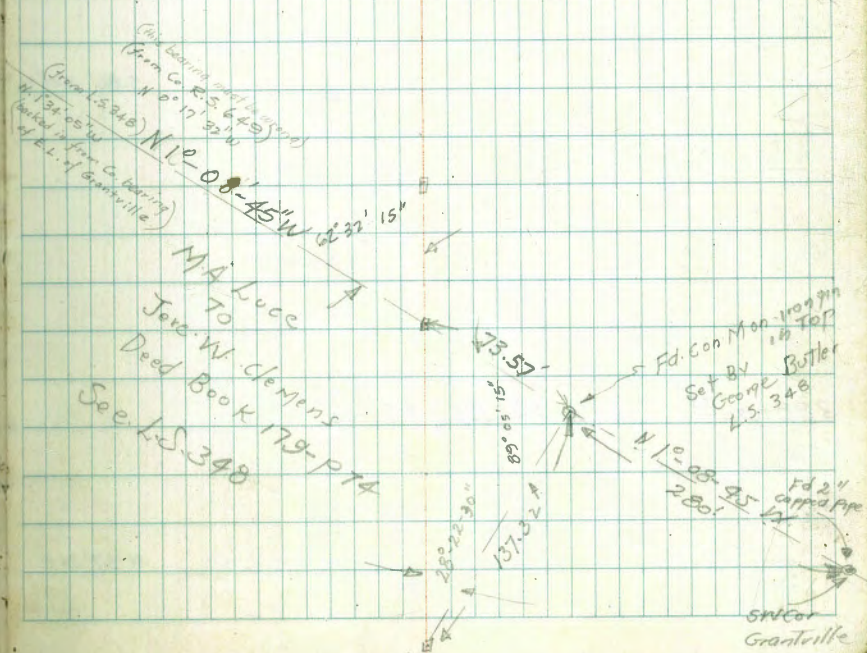 (this bearing must be wrong)
(from Co. R.S. 649)
N 0° 17' 32" W
(from L.S. 348)
N. 1° 34' 05" W
(backed in from Co. bearing
of E.L. of Grantville)
N 1°-08'-45" W
62° 32' 15"
MA Luce
TO
W. Clemens
Deed Book 179-P74
See L.S. 348
73.57'
Fd. Con Mon-Iron pin
in Top
Set By
George Butler
L.S. 348
89° 05' 15"
N. 1°-08-45 W
280'
Fd 2"
capped pipe
137.32
28°-22-30"
SW Cor
Grantville